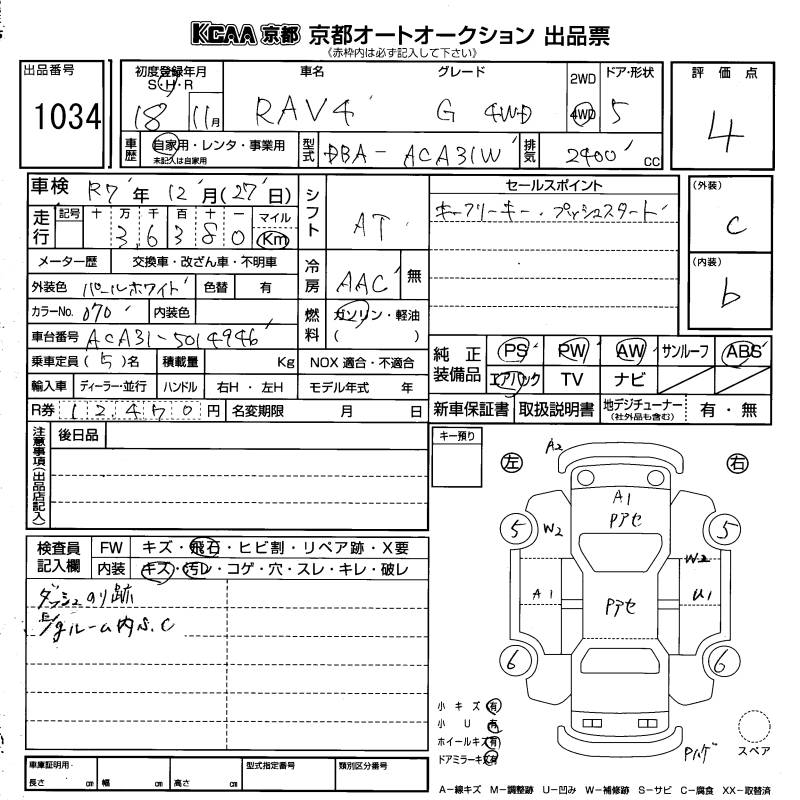 KCAA 京都 京都オートオークション 出品票
《赤枠内は必ず記入して下さい》
出品番号
1034
初度登録年月
S・H・R
18 11月
車名
RAV4
グレード
G 4WD
2WD
4WD
ドア・形状
5
評価点
4
車歴
自家用・レンタ・事業用
未記入は自家用
型式
DBA-ACA31W
排気
2400 CC
車検 R7年 12月(27日)
走行
記号 十 万 千 百 十 一 マイル
3,6380 Km
シフト
AT
セールスポイント
キーフリーキー・プッシュスタート
(外装)
C
(内装)
b
メーター歴 交換車・改ざん車・不明車
冷房
AAC 無
外装色 パールホワイト 色替 有
カラーNo. 070 内装色
燃料
ガソリン・軽油
( )
車台番号 ACA31-5014946
乗車定員 (5)名 積載量 Kg NOX 適合・不適合
輸入車 ディーラー・並行 ハンドル 右H・左H モデル年式 年
R券 12,470円 名変期限 月 日
純正装備品
PS PW AW サンルーフ ABS
エアバック TV ナビ
新車保証書 取扱説明書 地デジチューナー 有・無
(社外品も含む)
注意事項(出品店記入)
後日品
キー預り
検査員記入欄
FW キズ・飛石・ヒビ割・リペア跡・X要
内装 キズ・汚レ・コゲ・穴・スレ・キレ・破レ
ダッシュのり跡
E/gルーム内S.C
左 右
A2
A1
Pアセ
5 W2 5
W2
A1 Pアセ U1
6 6
小キズ 有
小U 有
ホイールキズ 有
ドアミラーキズ 有
Pハゲ
スペア
車庫証明用
長さ cm 幅 cm 高さ cm
型式指定番号
類別区分番号
A-線キズ M-調整跡 U-凹み W-補修跡 S-サビ C-腐食 XX-取替済